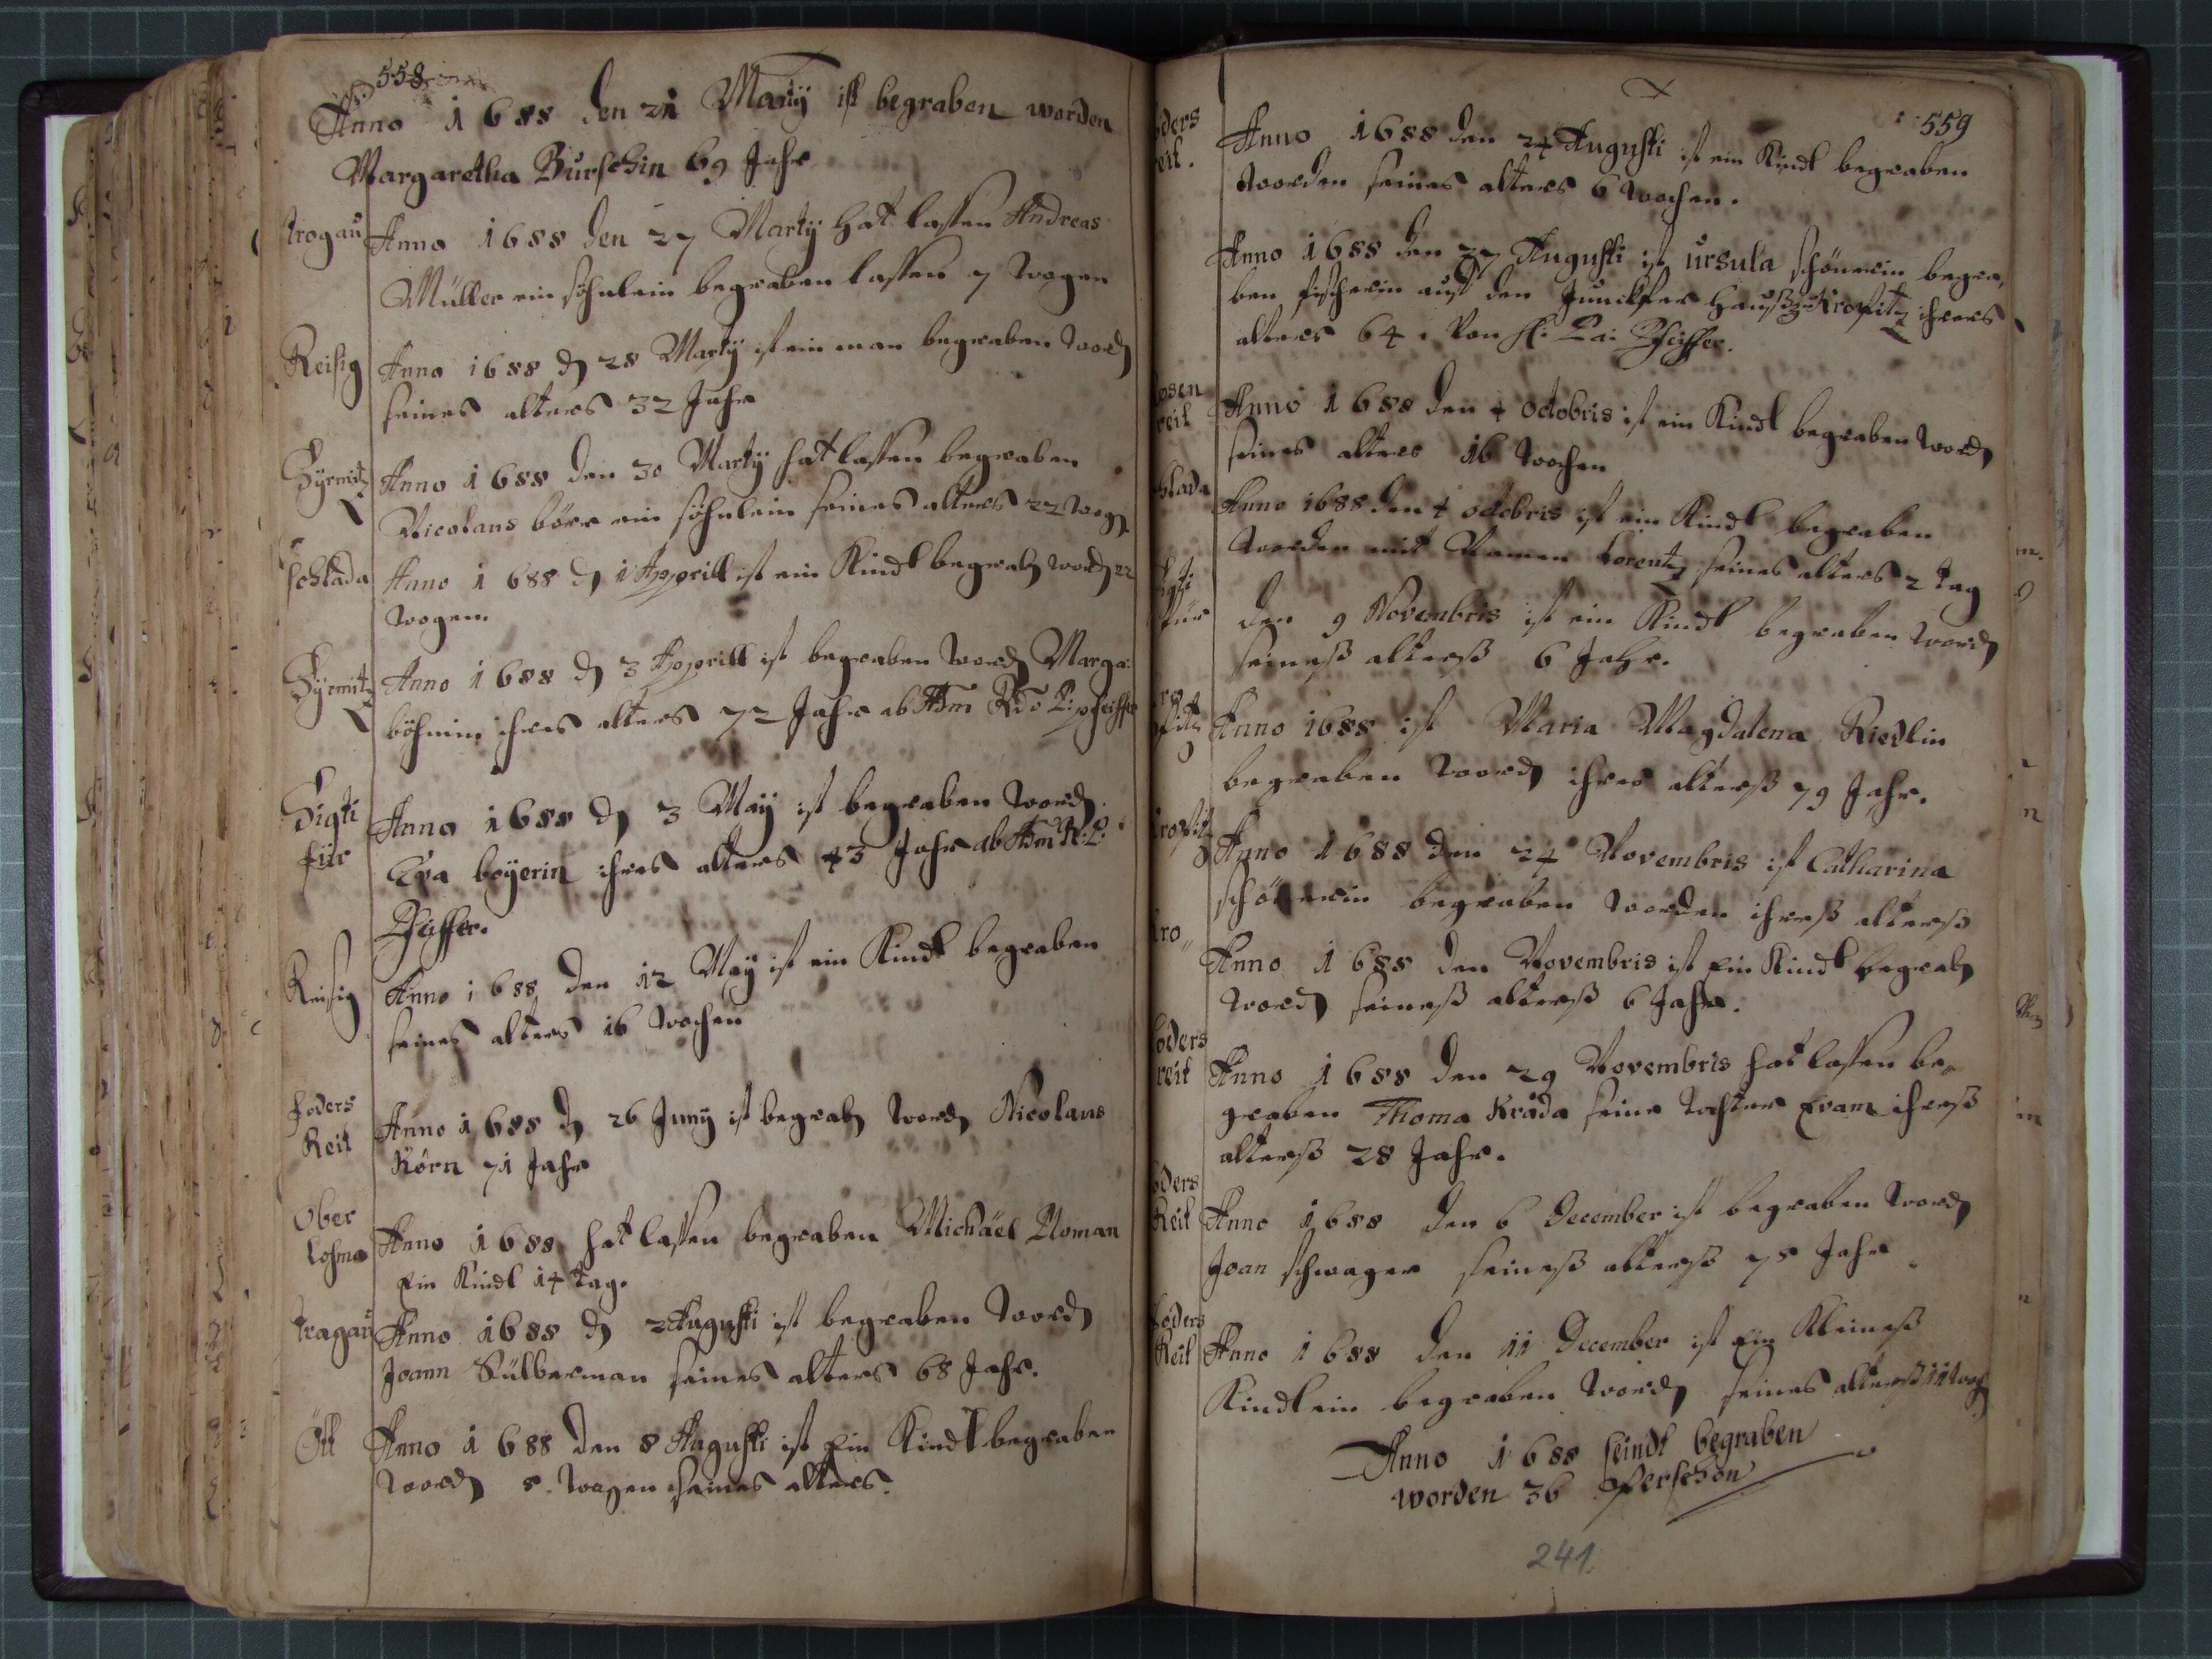 558
Anno 1688 den 21 Marty ist begraben worden
Margaretha Bürschin 69 Jahr
trogau Anno 1688 den 27 Marty hat lassen Andreas
Müller ein söhnlein begraben lassen 7 wogen
Reisig Anno 1688 d 28 Marty ist ein man begraben word
seines alters 32 Jahr
Zyrmitz Anno 1688 den 30 Marty hat lassen begraben
Nicolaus börr ein söhnlein seines alters 22 wog
schlada Anno 1688 d 1 Apprill ist ein Kindt begrab word 22
wogen.
Zyrmitz Anno 1688 d 3 Apprill ist begraben word Marga:
böhmin ihres alters 72 Jahr ab Adm Rdo P: pfeiffer
Anno 1688 d 3 May ist begraben word
für Eva beyerin ihres alters 43 Jahr ab Adm R: P:
Pfeiffer.
Reisig Anno 1688 den 12 May ist ein Kindt begraben
seines alters 16 wochen
foders Anno 1688 d 26 Juny ist begrab word Nicolaus
Reit Körn 71 Jahr
Ober Anno 1688 hat lassen begraben Michäel Ploman
Lohma ein Kindl 14 tag.
tragau Anno 1688 d 2 Augusti ist begraben word
Joann Sülberman seines alters 68 Jahr.
Ött Anno 1688 den 8 Augusti ist ein Kindt begraben
word 8. wogen seines alters.
559
oders Anno 1688 den 24 Augusti ist ein Kindt begraben
eit. worden seines alters 6 wochen.
Anno 1688 den 27 Augusti ist ursula schönerin begra,
ben fischerin auß den Junckher Hauß zu Kropitz ihres
alters 64. von H: Pa: Pfeiffer.
osen Anno 1688 den 4 octobris ist ein Kindt begraben word
reit seines alters 16 wochen
hlada Anno 1688 den 4 octobris ist ein Kindt begraben
worden mit Namen Lorentz seines alters 2 tag
den 9 Novembris ist ein Kindt begraben word
für seineß alterß 6 Jahr.
Anno 1688 ist Maria Magdalena Riedlin
begraben word ihres alterß 79 Jahr.
kropitz Anno 1688 den 24 Novembris ist Catharina
schönerin begraben worden ihreß alterß
kro,, Anno 1688 den Novembris ist Ein Kindt begrab
word seineß alterß 6 Jahr.
foders Anno 1688 den 29 Novembris hat lassen be,
reit graben Thoma Kráda seine tochter Evam ihreß
alterß 28 Jahr.
oders Anno 1688 den 6 December ist begraben word
Reit Joan schwager seineß alterß 78 Jahr.
foders Anno 1688 den 11 December ist ein Kleineß
Reit Kindlein begraben word seines alterß 11 woch
Anno 1688 seindt begraben
worden 36 Perschon
241.